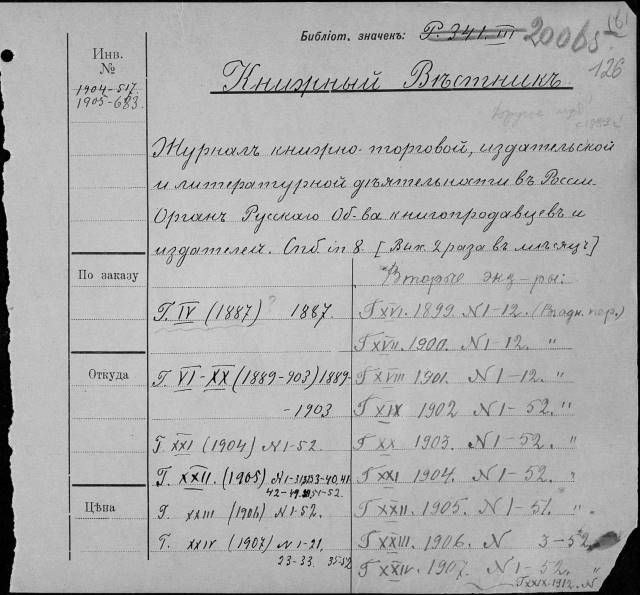 (6)
Библіот. значекъ: Г. 341. III 20065
126
Инв.
№
1904-517.
1905-683.
Книжный Вѣстникъ.
Журналъ книжно-торговой, издательской
и литературной дѣятельности въ Россіи.
Органъ Русскаго Об-ва книгопродавцевъ и
издателей. Спб. in 8. [Вых. 2 раза въ мѣсяцъ]
По заказу
Откуда
Цѣна
Г. IV (1887)? 1887.
Г. VI-XX (1889-903) 1889-
-1903
Г. XXI (1904) N 1-52.
Г. XXII. (1905) N 1- 33-40, 41
42-49. 51-52.
Г. XXIII (1906) N 1-52.
Г. XXIV (1907) N 1-21.
23-33. 35-52
Вторые экз-ры:
Г XVI. 1899. N 1-12. (В одн. пер.)
Г XVII. 1900. N 1-12. "
Г XVIII 1901. N 1-12. "
Г XIX 1902 N 1-52. "
Г XX 1903. N 1-52. "
Г XXI 1904. N 1-52. "
Г XXII. 1905. N 1-51. "
Г XXIII. 1906. N 3-52
Г XXIV. 1907. N 1-52. "
Г XXIX. 1912. N